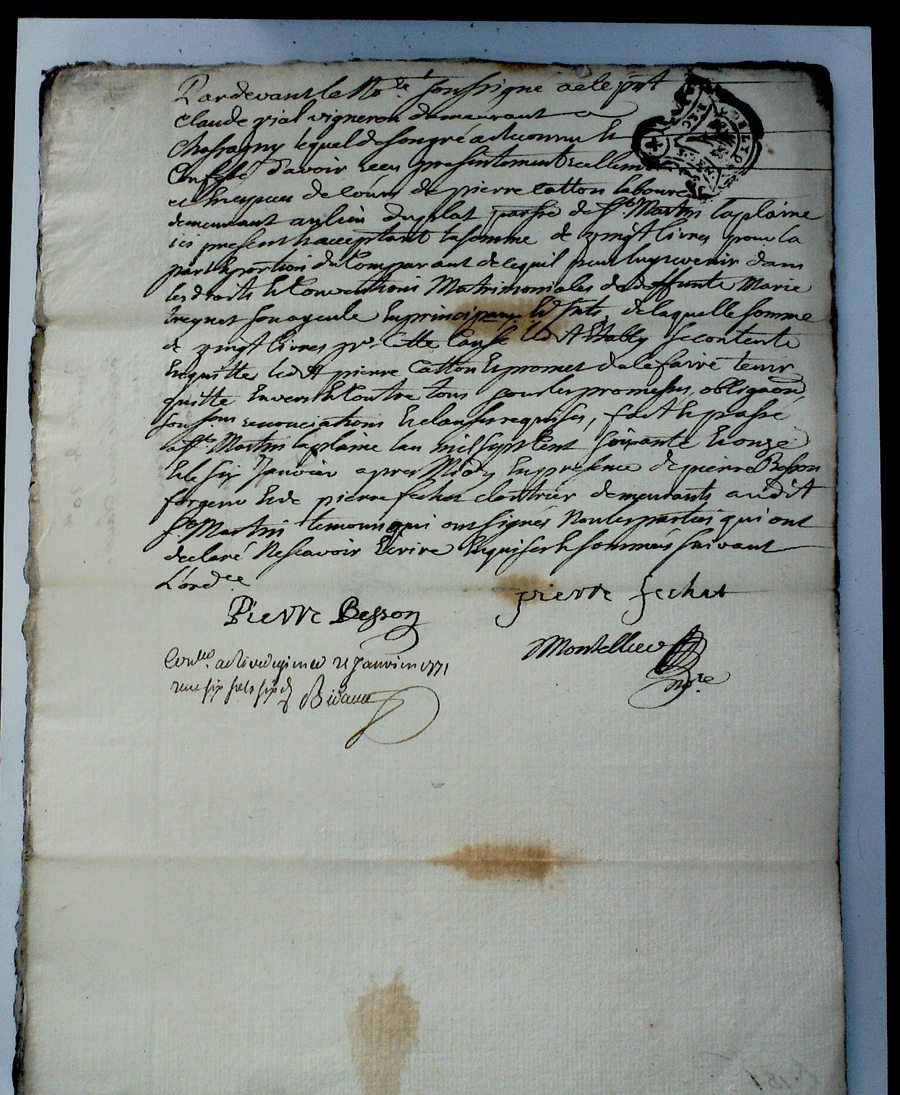 Pardevant le No.re soussigné a eté prt
Claude vial vigneron demeurant a
Chassagny lequel de son gré a reconnu et
Confessé d'avoir receu presentement reellement
et especes de cours de pierre Catton laboureur
demeurant au lieu du plat parsse de St. Martin laplaine
ici present et acceptant la somme de vingt livres pour la
part et portion du Comparant de ce quil peut luy revenir dans
les droits et Conventions Matrimoniales de deffunte Marie
son ayeule En principaux et de laquelle somme
de vingt livres pr. Cette Cause se contente
En quitte ledit pierre Catton et promet de le faire tenir
quitte Envers et Contre tous par les promesses, obligaon
soumons renonciations et clauses requises, fait et passé
a St. Martin laplaine lan mil sept cent soixante et onze
et le six Janvier apres Midy En presence de pierre Besson
forgeur et de pierre fechet cloutrier demeurants audit
St. Martin temoins qui ont signés Non les parties qui ont
declaré Ne scavoir Ecrire Enquises et sommées suivant
L'ord.ce
Pierre Besson
pierre fechet
Montellier
no.re
Con.llé a Rivedegier le 21 janvier 1771
reçu six sols six d